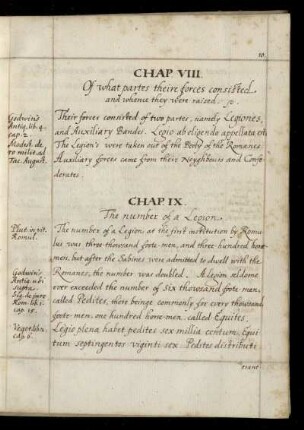 10.
CHAP. VIII.
Of what partes theire forces consisted
and whence they were raised.
Godwin's
Antiq. lib. 4.
cap. 2.
Modest. de
re milit. ad
Tac. August.
Their forces consisted of two partes, namely Legiones,
and Auxiliary Bandes. Legio ab eligendo appellata est.
The Legion's were taken out of the Body of the Romanes
Auxiliary forces came from their Neighbours and Confe
derates.
CHAP. IX.
The number of a Legion.
Plut. in vit.
Romul.
Godwin's
Antiq. ubi
supra.
Sig. de jure
Rom. lib. 1.
cap. 15.
Veget. lib.
cap. 6.
The number of a Legion, at the first institution by Romu
lus was three thousand foote-men, and three hundred horse
men, but after the Sabines were admitted to dwell with the
Romanes, the number was doubled. A legion seldome
over exceeded the number of six thousand foote-men,
called Pedites, there beinge commonly for every thousand
foote-men, one hundred horse-men, called Equites.
Legio plena habet pedites sex millia centum, Equi
tum septingentos viginti sex. Pedites distributi
erant